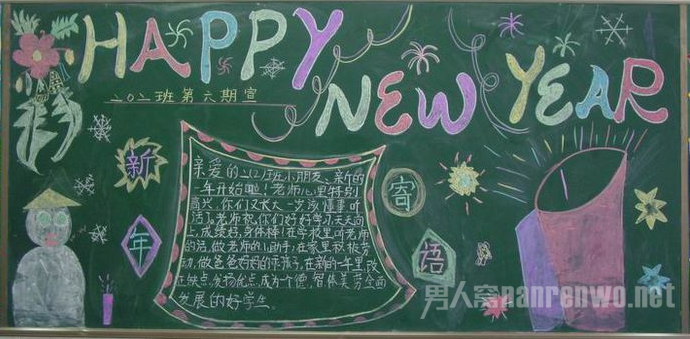 HAPPY
NEW YEAR
二〇二班第六期宣
新
年
寄
语
亲爱的二(2)班小朋友、新的
一年开始啦!老师心里特别
高兴、你们又长大一岁该懂事听
话了。老师祝你们好好学习、天天向
上,成绩好,身体棒!在学校里听老师
的话,做老师的小助手;在家里积极劳
动,做爸爸妈妈的乖孩子,在新的一年里,改
正缺点,发扬优点,成为一个德、智体美劳全面
发展的好学生。
男人窝nanrenwo.net